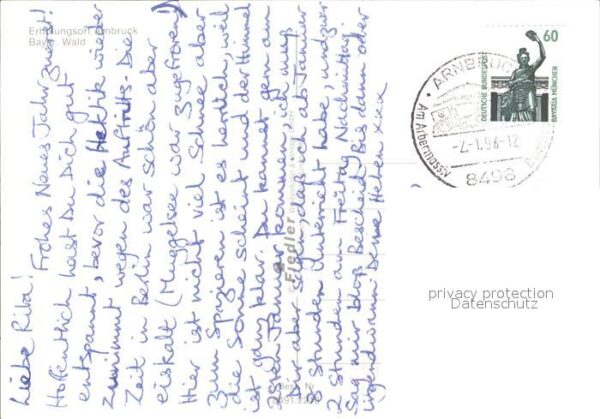 Erholungsort Arnbruck
Bayr. Wald
Liebe Rita!
Frohes Neues Jahr zuerst!
Hoffentlich hast Du Dich gut
entspannt, bevor die Hektik wieder
zunimmt wegen des Auftritts. Die
Zeit in Berlin war schön aber
eiskalt (Müggelsee war zugefroren!)
Hier ist nicht viel Schnee aber
zum Spazieren ist es herrlich, weil
die Sonne scheint und der Himmel
ist ganz klar. Du kannst gern am
Januar kommen, ich muß
Dir aber sagen, daß ich ab Januar
Stunden Unterricht habe, und zwar
2 Stunden am Freitag Nachmittag
Sag mir bloß Bescheid! Bis dann oder
irgendwann Deine xxx
Fiedler
Best. Nr.
60
DEUTSCHE BUNDESPOST
BAVARIA MÜNCHEN
ARNBRUCK
Am Arbermassiv
8498
privacy protection
Datenschutz